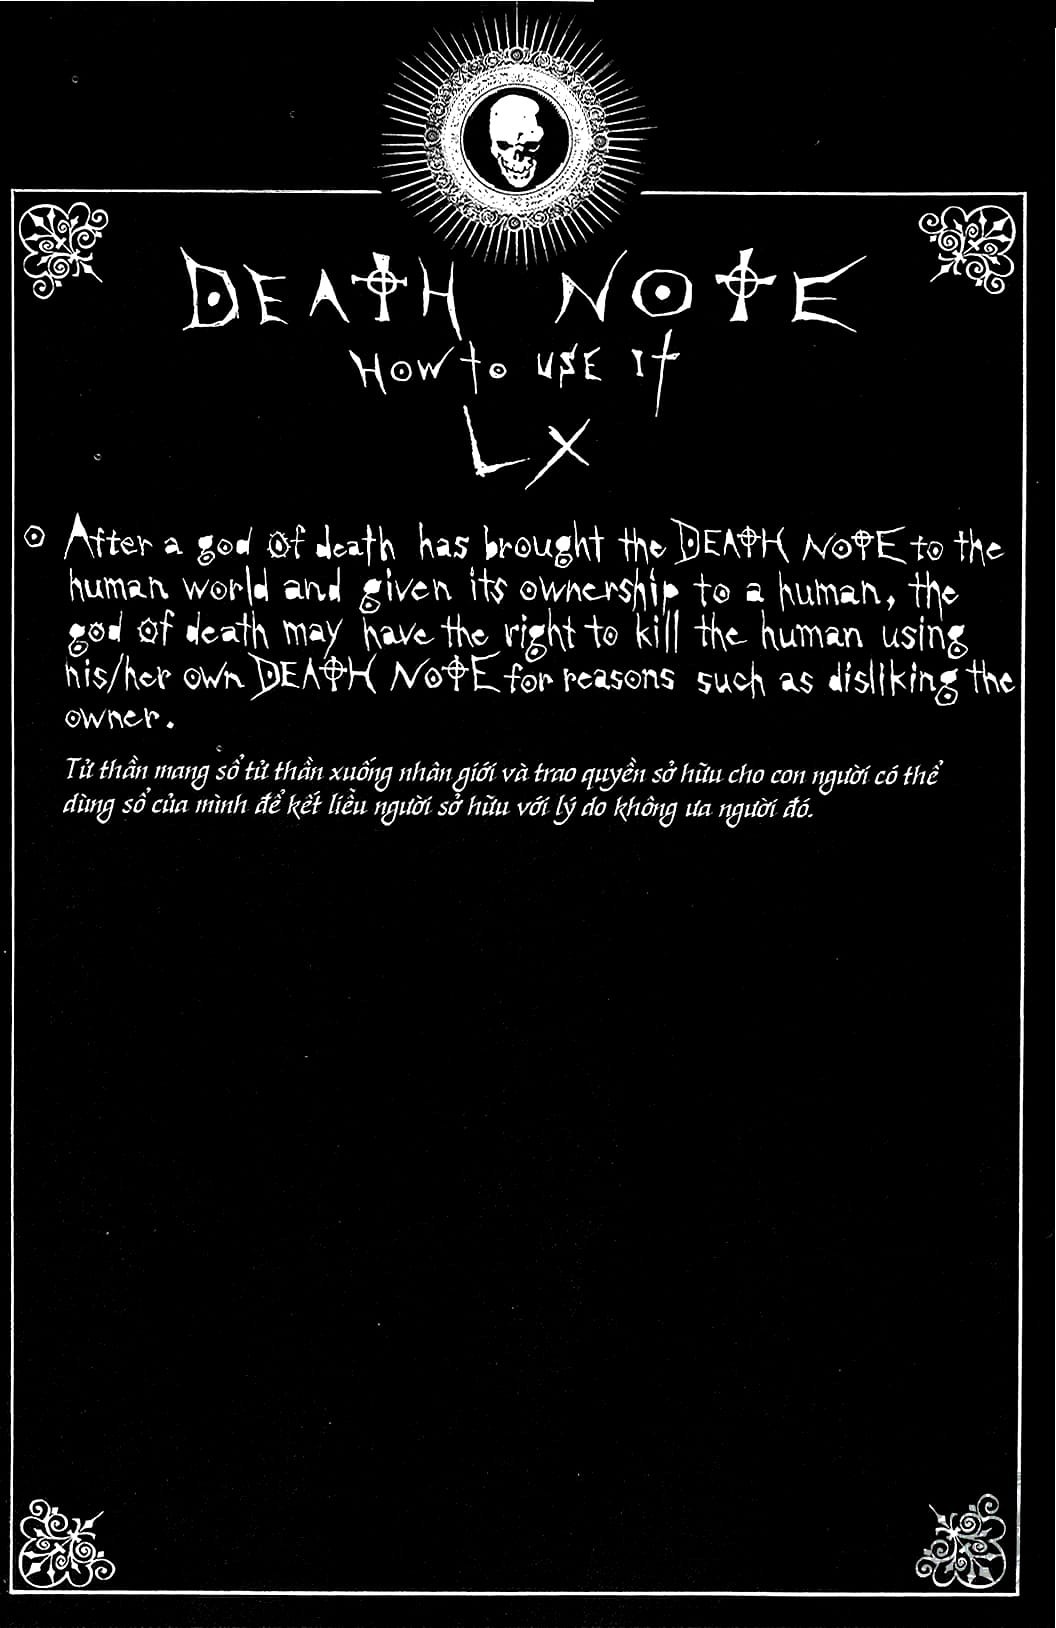 DEATH NOTE
HOW to USE It
LX
After a god of death has brought the DEATH NOTE to the
human world and given its ownership to a human, the
god of death may have the right to kill the human using
his/her own DEATH NOTE for reasons such as disliking the
owner.
Tử thần mang sổ tử thần xuống nhân giới và trao quyền sở hữu cho con người có thể
dùng sổ của mình để kết liễu người sở hữu với lý do không ưa người đó.